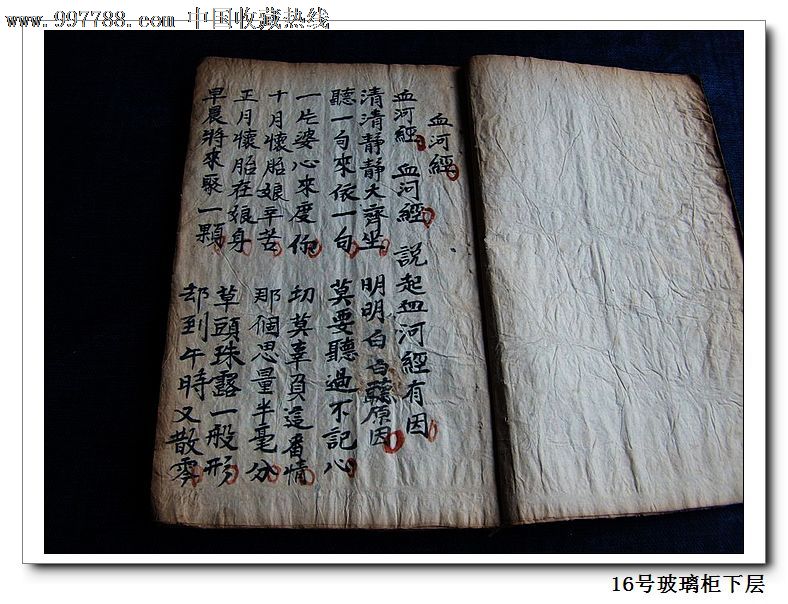 www.997788.com 中国收藏热线
血河經
血河經 血河經 說起血河經有因
清清靜靜大齊坐 明明白白聽原因
聽一句來依一句 莫要聽過不記心
一片婆心來度你 切莫辜負這番情
十月懷胎娘辛苦 那個思量半毫分
正月懷胎在娘身 草頭珠露一般形
早晨將來聚一顆 却到午時又散零
16号玻璃柜下层